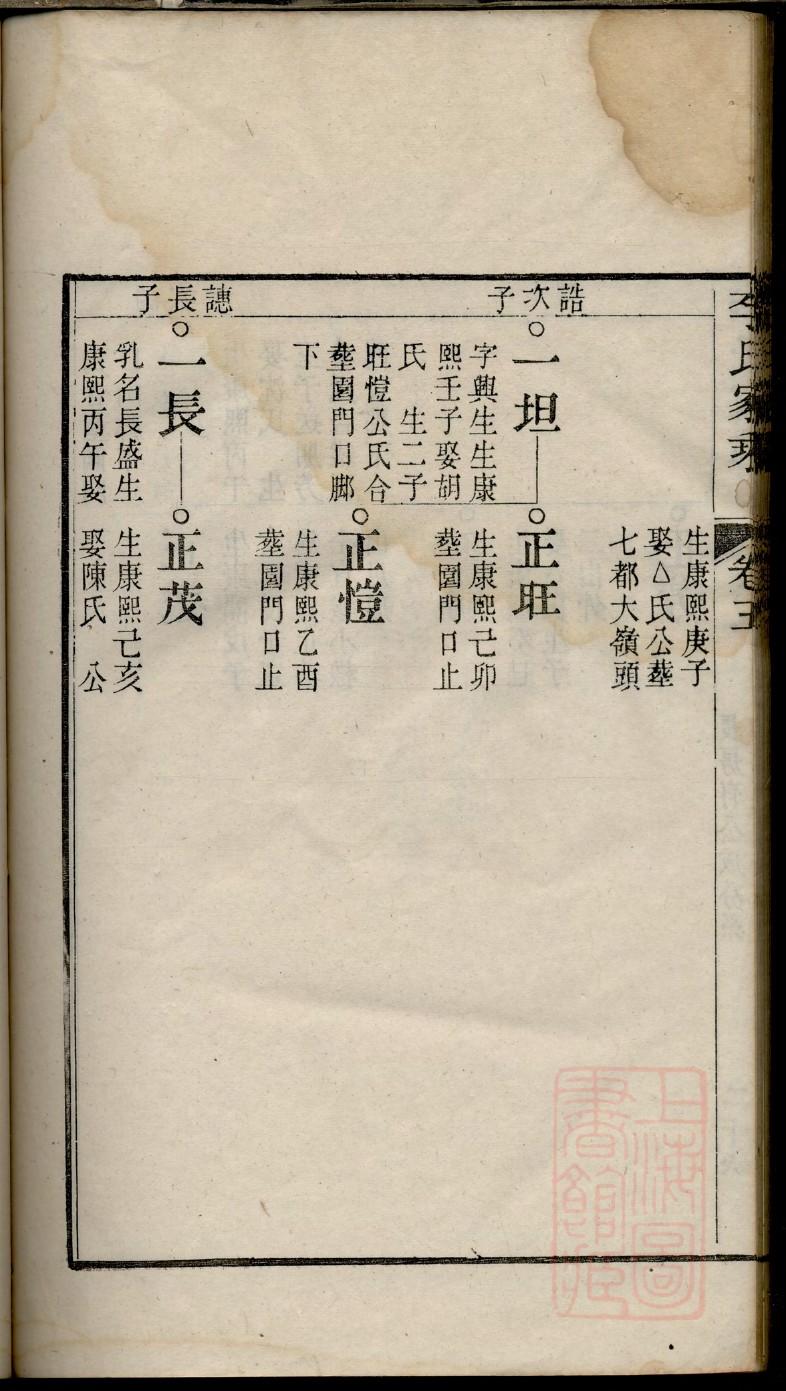 李氏家乘
卷五
生康熙庚子
娶△氏公塟
七都大嶺頭
誥次子
一坦
字興生生康
熙壬子娶胡
氏 生二子
旺愷公氏合
塟園門口脚
下
正旺
生康熙己卯
塟園門口止
正愷
生康熙乙酉
塟園門口止
譓長子
一長
乳名長盛生
康熙丙午娶
正茂
生康熙己亥
娶陳氏 公
上海圖
書館藏